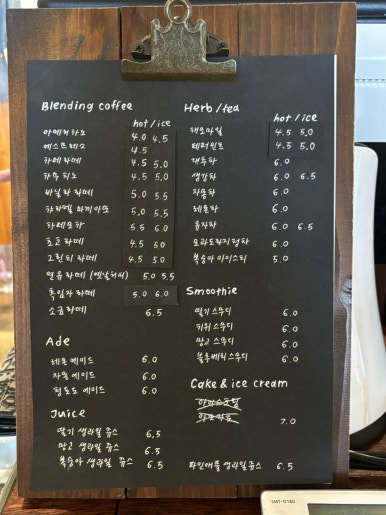 Blending coffee
hot / ice
아메리카노 4.0 4.5
에스프레소 4.5
카페라떼 4.5 5.0
카푸치노 4.5 5.0
바닐라 라떼 5.0 5.5
카라멜 마끼아또 5.0 5.5
카페모카 5.5 6.0
초코라떼 4.5 5.0
그린티 라떼 4.5 5.0
연유라떼 (옛날커피) 5.0 5.5
흑임자 라떼 5.0 6.0
소금라떼 6.5
Ade
레몬 에이드 6.0
자몽 에이드 6.0
청포도 에이드 6.0
Juice
딸기 생과일 쥬스 6.5
망고 생과일 쥬스 6.5
복숭아 생과일 쥬스 6.5
Herb / tea
hot / ice
캐모마일 4.5 5.0
페퍼민트 4.5 5.0
대추차 6.0
생강차 6.0 6.5
자몽차 6.0
레몬차 6.0
유자차 6.0 6.5
모과도라지청차 6.0
복숭아 아이스티 5.0
Smoothie
딸기 스무디 6.0
키위 스무디 6.0
망고 스무디 6.0
블루베리 스무디 6.0
Cake & ice cream
7.0
파인애플 생과일쥬스 6.5
SMT-D180